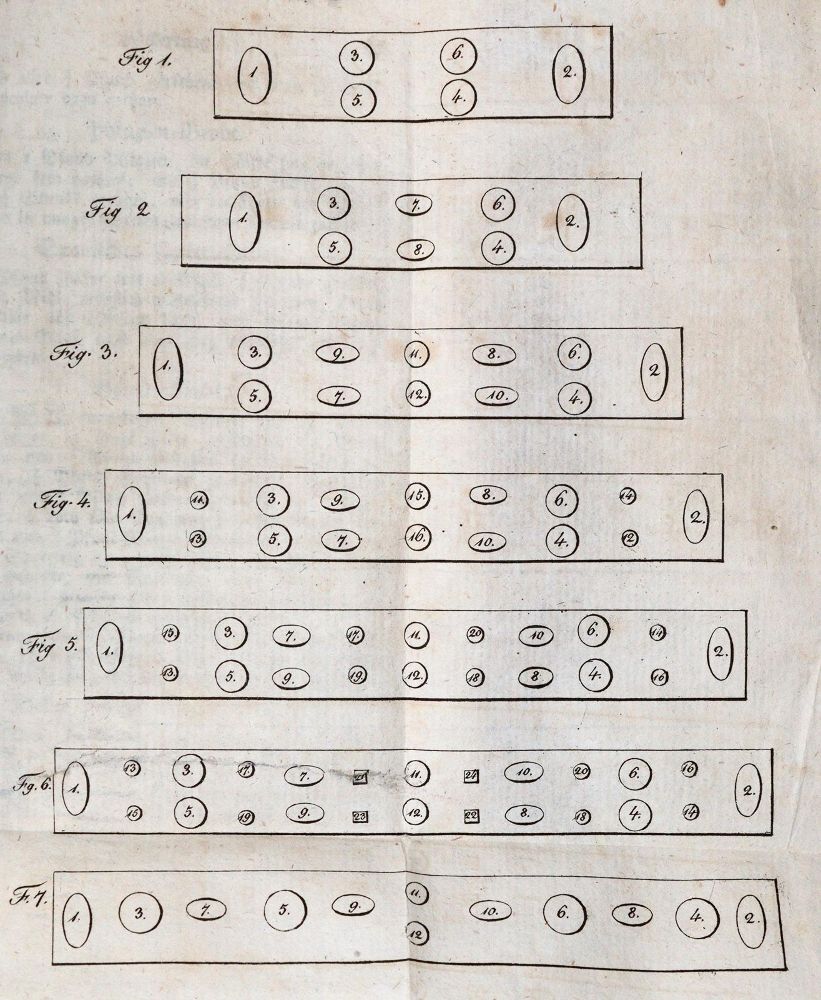 Fig 1.
1 3. 6. 2.
5. 4.
Fig 2
1. 3. 7. 6. 2.
5. 8. 4.
Fig. 3.
1. 3. 9. 11. 8. 6. 2
5. 7. 12. 10. 4.
Fig. 4.
1. 11. 3. 9. 15. 8. 6. 14 2.
13 5. 7. 16. 10. 4. 12
Fig 5.
1. 15. 3. 7. 17. 11. 20 10 6. 14 2.
13. 5. 9. 19 12. 18 8. 4. 16
Fg. 6.
1. 13 3. 17. 7. 21 11. 24 10. 20 6. 16 2.
15. 5. 19 9. 23 12. 22 8. 18 4. 14
F. 7.
1. 3. 7. 5. 9. 11. 10. 6. 8. 4. 2.
12